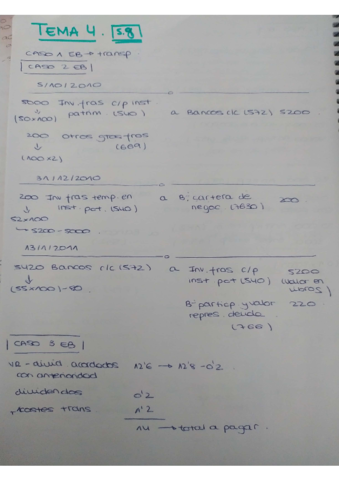 TEMA 4. 5.8
CASO 1 EB → transp
CASO 2 EB
5/10/2010
5000 Inv. fras c/p inst
patrim (540) a Bancos c/c (572) 5200
(50x100)
200 otros gtos fras
(669)
(100x2)
31/12/2010
200 Inv fras temp en a B: cartera de 200
inst. pat. (540) negoc (7630)
52x100
→ 5200-5000
13/1/2011
5420 Bancos c/c (572) a Inv. fras c/p 5200
inst pat (540) (valor en
(55x100)-80 libros)
B: particip y valor 220
repres. deuda
(766)
CASO 3 EB
acordados 12'6 → 12'8-0'2
con anterioridad
dividendos 0'2
+ costes trans 1'2
14 → total a pagar.